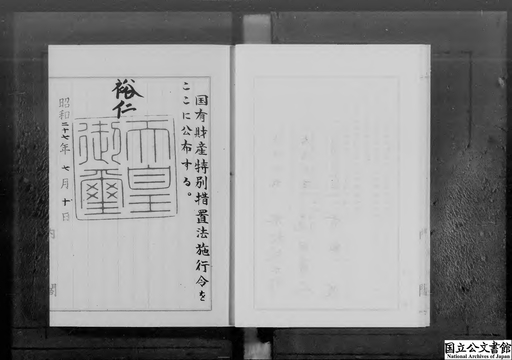 国有財産特別措置法施行令を
ここに公布する。
裕仁
天皇
御璽
昭和二十七年七月十日
内
閣
国立公文書館
National Archives of Japan